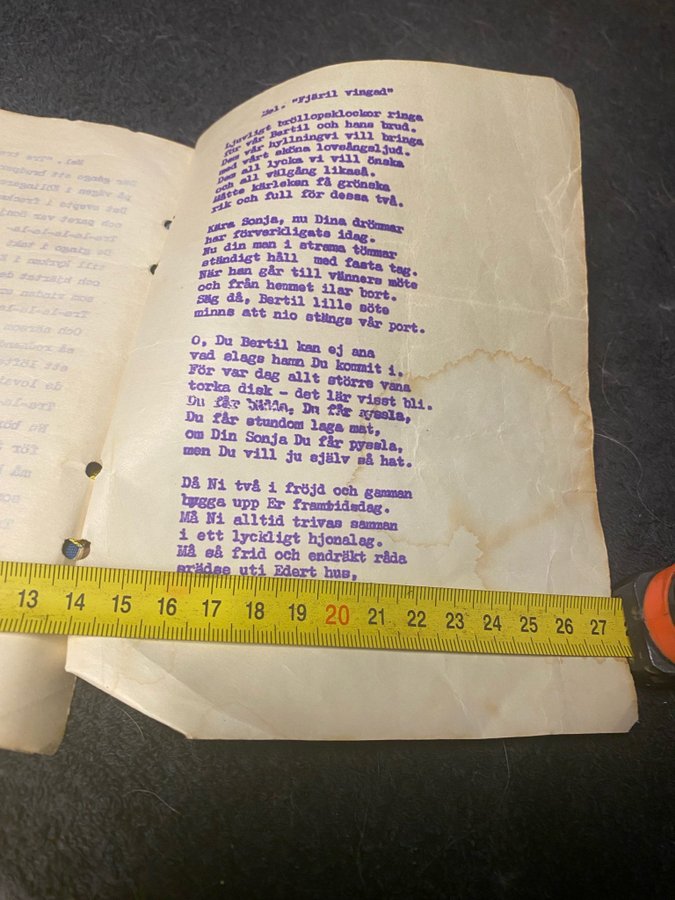 Mel. "Fjäril vingad"
Ljuvligt bröllopsklockor ringa
för vår Bertil och hans brud.
Dem vår hyllningvi vill bringa
med vårt sköna lovsångsljud.
Dem all lycka vi vill önska
och all välgång likaså.
Måtte kärleken få grönska
rik och full för dessa två.
Kära Sonja, nu Dina drömmar
har förverkligats idag.
Nu din man i strama tömmar
ständigt håll med fasta tag.
När han går till vänners möte
och från hemmet ilar bort.
Säg då, Bertil lille söte
minns att nio stängs vår port.
O, Du Bertil kan ej ana
vad slags hamn Du kommit i.
För var dag allt större vana
torka disk - det lär visst bli.
Du får bädda, Du får sysla,
Du får stundom laga mat,
om Din Sonja Du får pyssla,
men Du vill ju själv så hat.
Då Ni två i fröjd och gamman
bygga upp Er framtidsdag.
Må Ni alltid trivas samman
i ett lyckligt hjonalag.
Må så frid och endräkt råda
städse uti Edert hus,
13 14 15 16 17 18 19 20 21 22 23 24 25 26 27